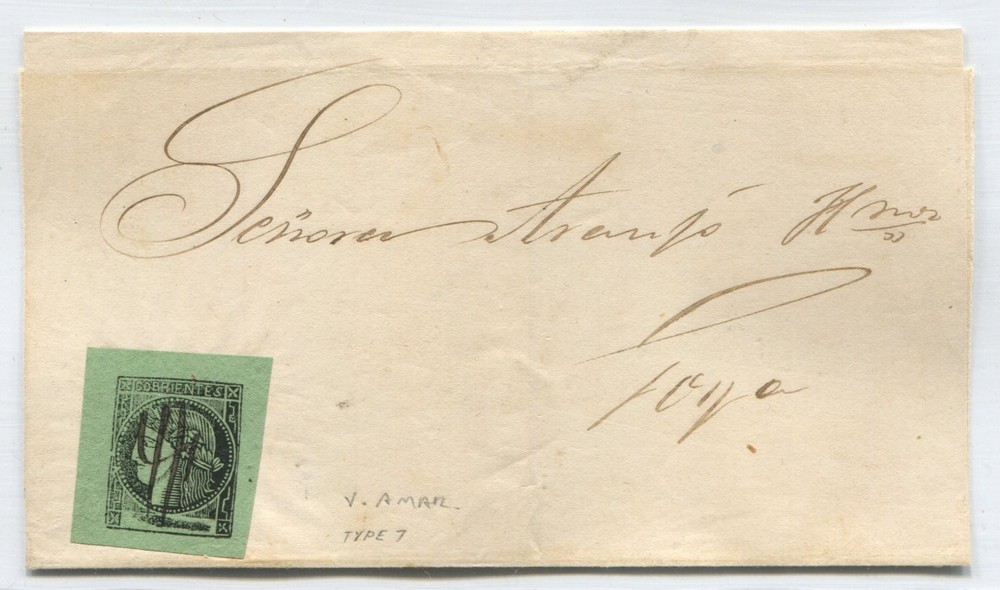 Señores Araujó Hnos
Goya
CORRIENTES
V. AMAR.
TYPE 7